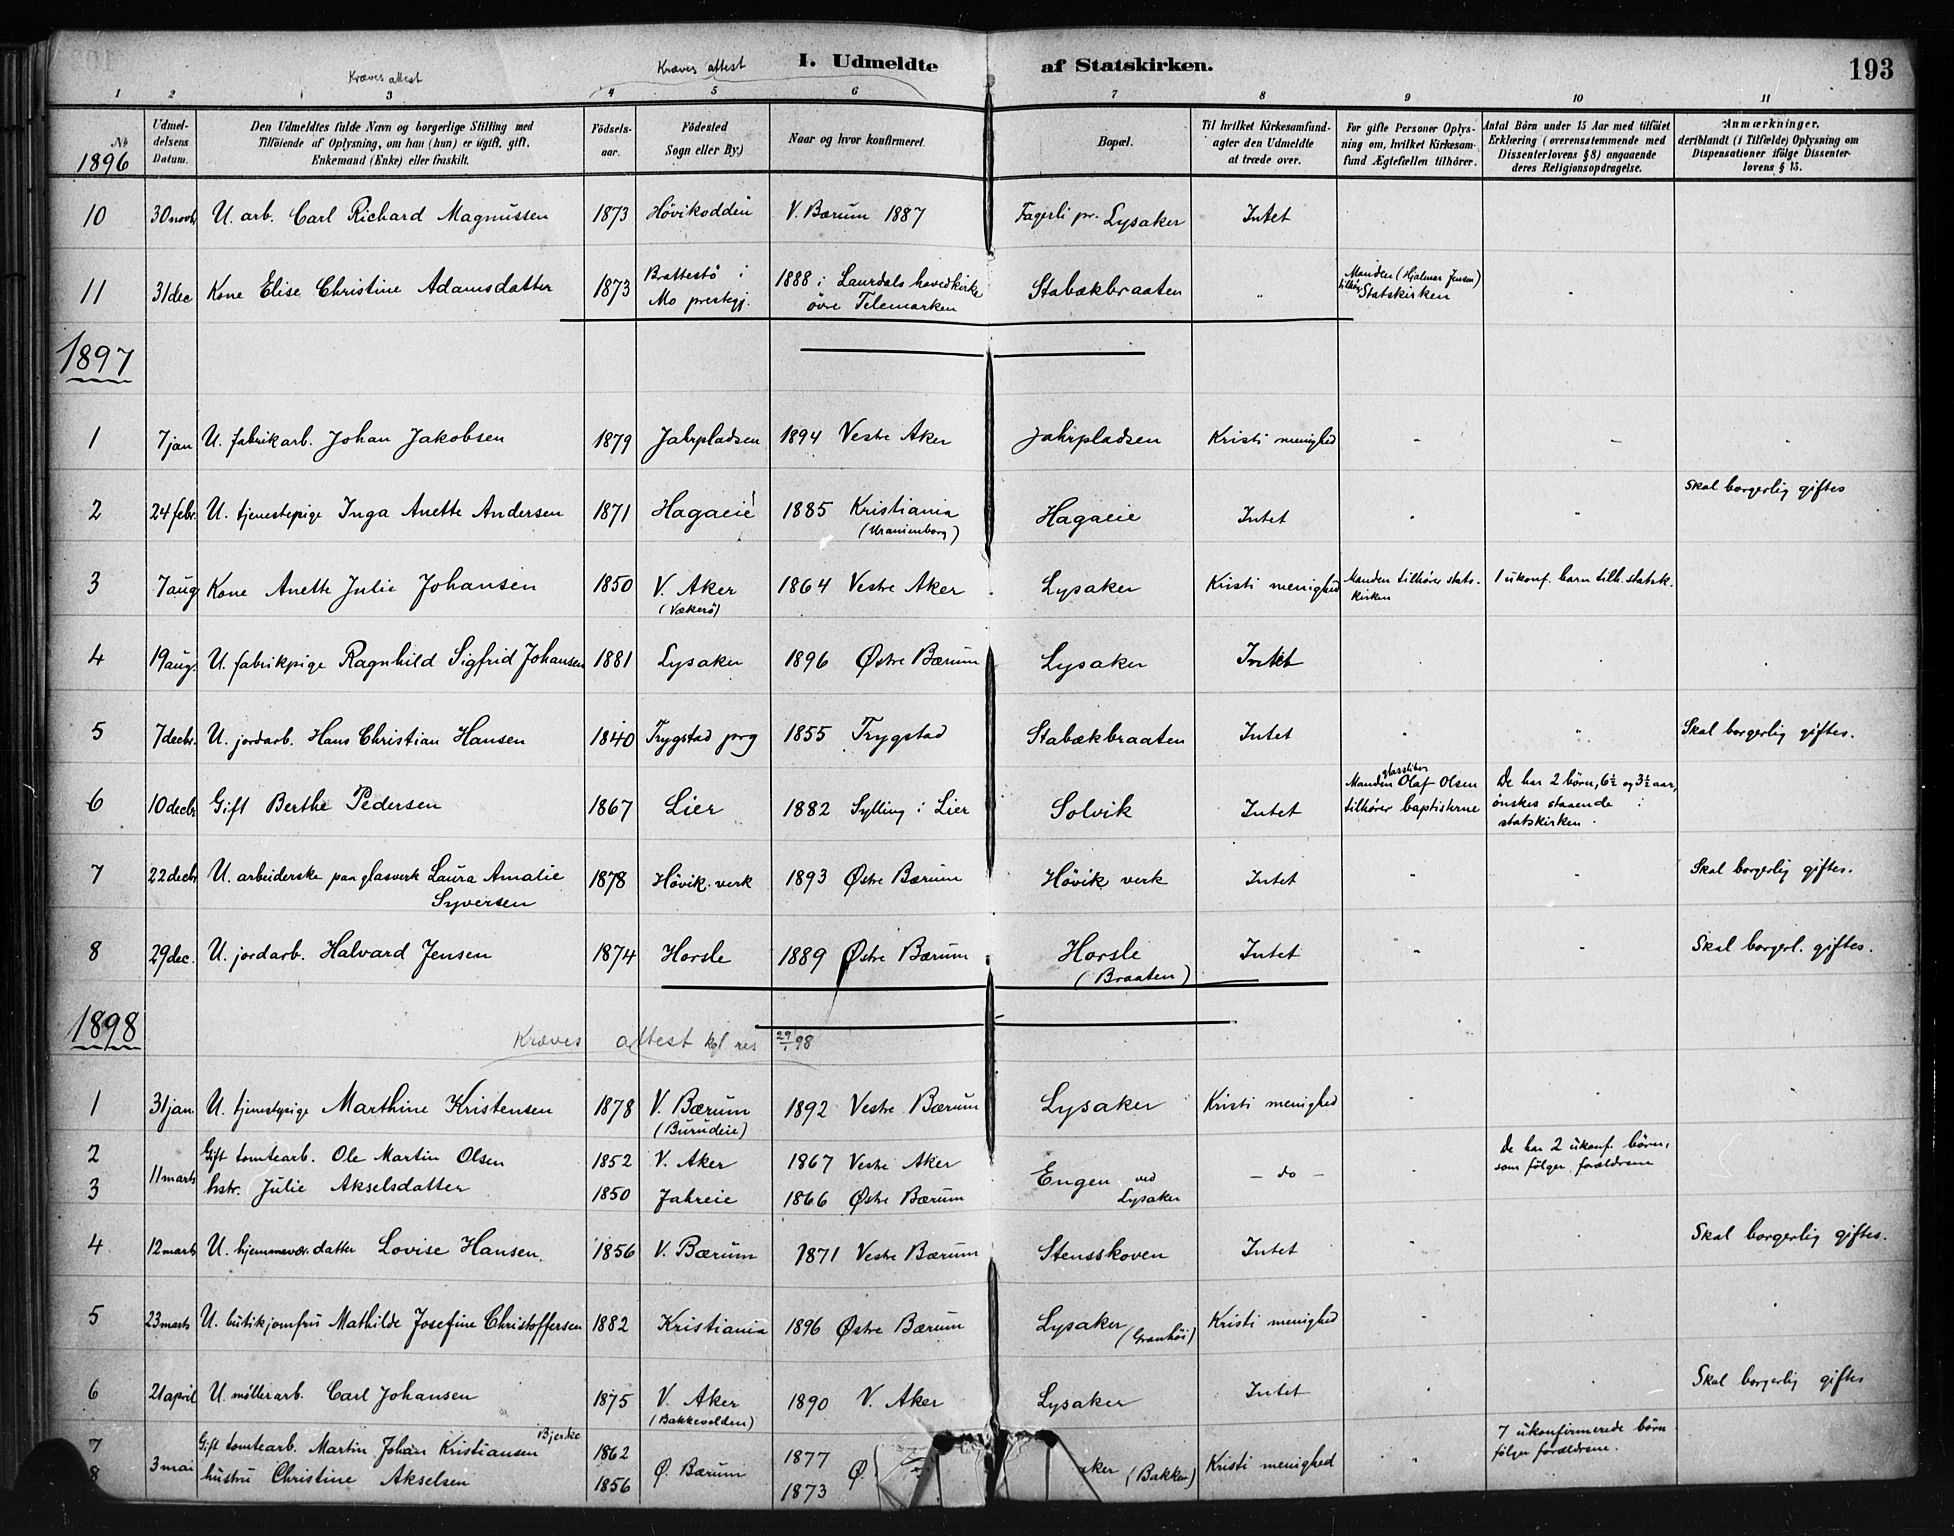 Kræves attest Kræves attest I. Udmeldte af Statskirken. 193
1 2 3 4 5 6 7 8 9 10 11
No 1896
Udmel-
delsens
Datum.
Den Udmeldtes fulde Navn og borgerlige Stilling med
Tilföiende af Oplysning, om han (hun) er ugift, gift,
Enkemand (Enke) eller fraskilt.
Födsels-
aar.
Födested
Sogn eller By.)
Naar og hvor konfirmeret.
Bopæl.
Til hvilket Kirkesamfund-
agter den Udmeldte
at træde over.
For gifte Personer Oplys-
ning om, hvilket Kirkesam-
fund Ægtefællen tilhörer.
Antal Börn under 15 Aar med tilföiet
Erklæring (overensstemmende med
Dissenterlovens § 8) angaaende
deres Religionsopdragelse.
Anmærkninger,
deriblandt (i Tilfælde) Oplysning om
Dispensationer ifölge Dissenter-
lovens § 15.
10 30 novb. U. arb. Carl Richard Magnussen 1873 Hövikodden V. Bærum 1887 Fagerli pr. Lysaker Intet
11 31 dec Kone Elise Christine Adamsdatter 1873 Brattestö i
Mo prestegj. 1888 i Laurdals hovedkirke
övre Telemarken Stabækbraaten " Manden (Hjalmar Jensen)
tilhör Statskirken
1897
1 7 jan U. fabrikarb. Johan Jakobsen 1879 Jahrpladsen 1894 Vestre Aker Jahrpladsen Kristi menighed
2 24 febr. U. tjenestepige Inga Anette Andersen 1871 Hagaeie 1885 Kristiania
(Uranienborg) Hagaeie Intet Skal borgerlig giftes
3 7 aug Kone Anette Julie Johansen 1850 V. Aker
(Vækerö) 1864 Vestre Aker Lysaker Kristi menighed Manden tilhörer stats-
kirken 1 ukonf. barn tilh. statsk.
4 19 aug. U. fabrikpige Ragnhild Sigfrid Johansen 1881 Lysaker 1896 Østre Bærum Lysaker Intet
5 7 decbr. U. jordarb. Hans Christian Hansen 1840 Trygstad prg 1855 Trygstad Stabækbraaten Intet Skal borgerlig giftes.
6 10 decb. Gift Berthe Pedersen 1867 Lier 1882 Sylling i Lier Solvik Intet Manden glassliber Olaf Olsen
tilhörer baptisterne De har 2 börn, 6½ og 3½ aar,
önskes staaende i
statskirken.
7 22 decb. U. arbeiderske paa glasverk Laura Amalie
Syversen 1878 Hövik verk 1893 Østre Bærum Hövik verk Intet Skal borgerlig giftes.
8 29 dec. U. jordarb. Halvard Jensen 1874 Horsle 1889 Østre Bærum Horsle
(Braaten) Intet Skal borgerl. giftes.
1898
Kræves attest kgl res 29/1 98
1 31 jan. U. tjenestepige Marthine Kristensen 1878 V. Bærum
(Burudeie) 1892 Vestre Bærum Lysaker Kristi menighed
2 Gift tomtearb. Ole Martin Olsen 1852 V. Aker 1867 Vestre Aker De har 2 ukonf. börn,
som fölger forældrene
11 marts Engen ved
Lysaker - do -
3 hstr. Julie Akselsdatter 1850 Jahreie 1866 Østre Bærum
4 12 marts U. hjemmevær. datter Lovise Hansen. 1856 V. Bærum 1871 Vestre Bærum Stensskoven Intet Skal borgerlig giftes.
5 23 marts U. butikjomfru Mathilde Josefine Christoffersen 1882 Kristiania 1896 Østre Bærum Lysaker
(Granhöi) Kristi menighed
6 21 april U. möllerarb. Carl Johansen 1875 V. Aker
(Bakkevolden) 1890 V. Aker Lysaker Intet Skal borgerlig giftes
7 Gift tomtearb. Martin Johan Kristiansen Bjerke 1862 1877 7 ukonfirmerede börn
fölger forældrene.
3 mai Ø. Bærum Ø. aker (Bakken) Kristi menighed
8 hustru Christine Akselsen 1856 1873